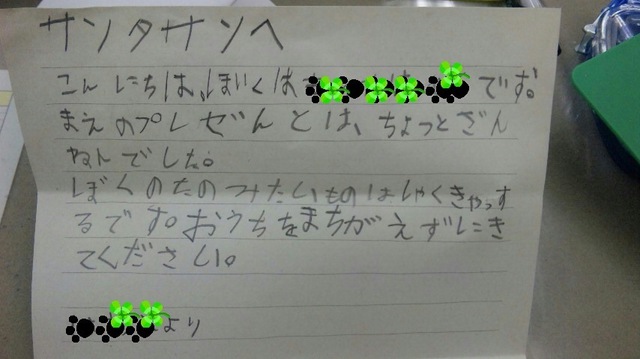 サンタサンへ
こんにちは、ぼくは です。
まえのプレぜんとは、ちょっとざん
ねんでした。
ぼくのたのみたいものはしゃくきゃっす
るです。おうちをまちがえずにき
てください。
より